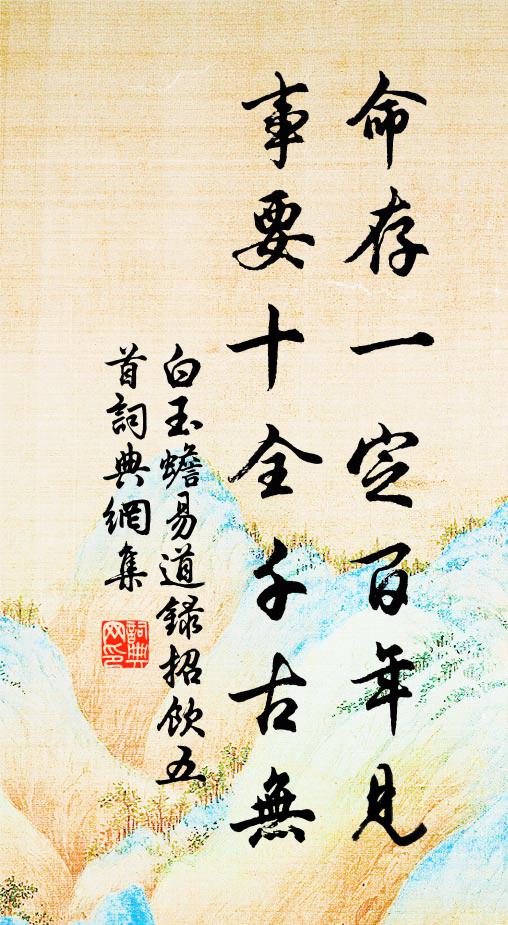 命存一定百年見
事要十全千古無
白玉蟾易道録招飲五
首詞典網集
詞典
网印